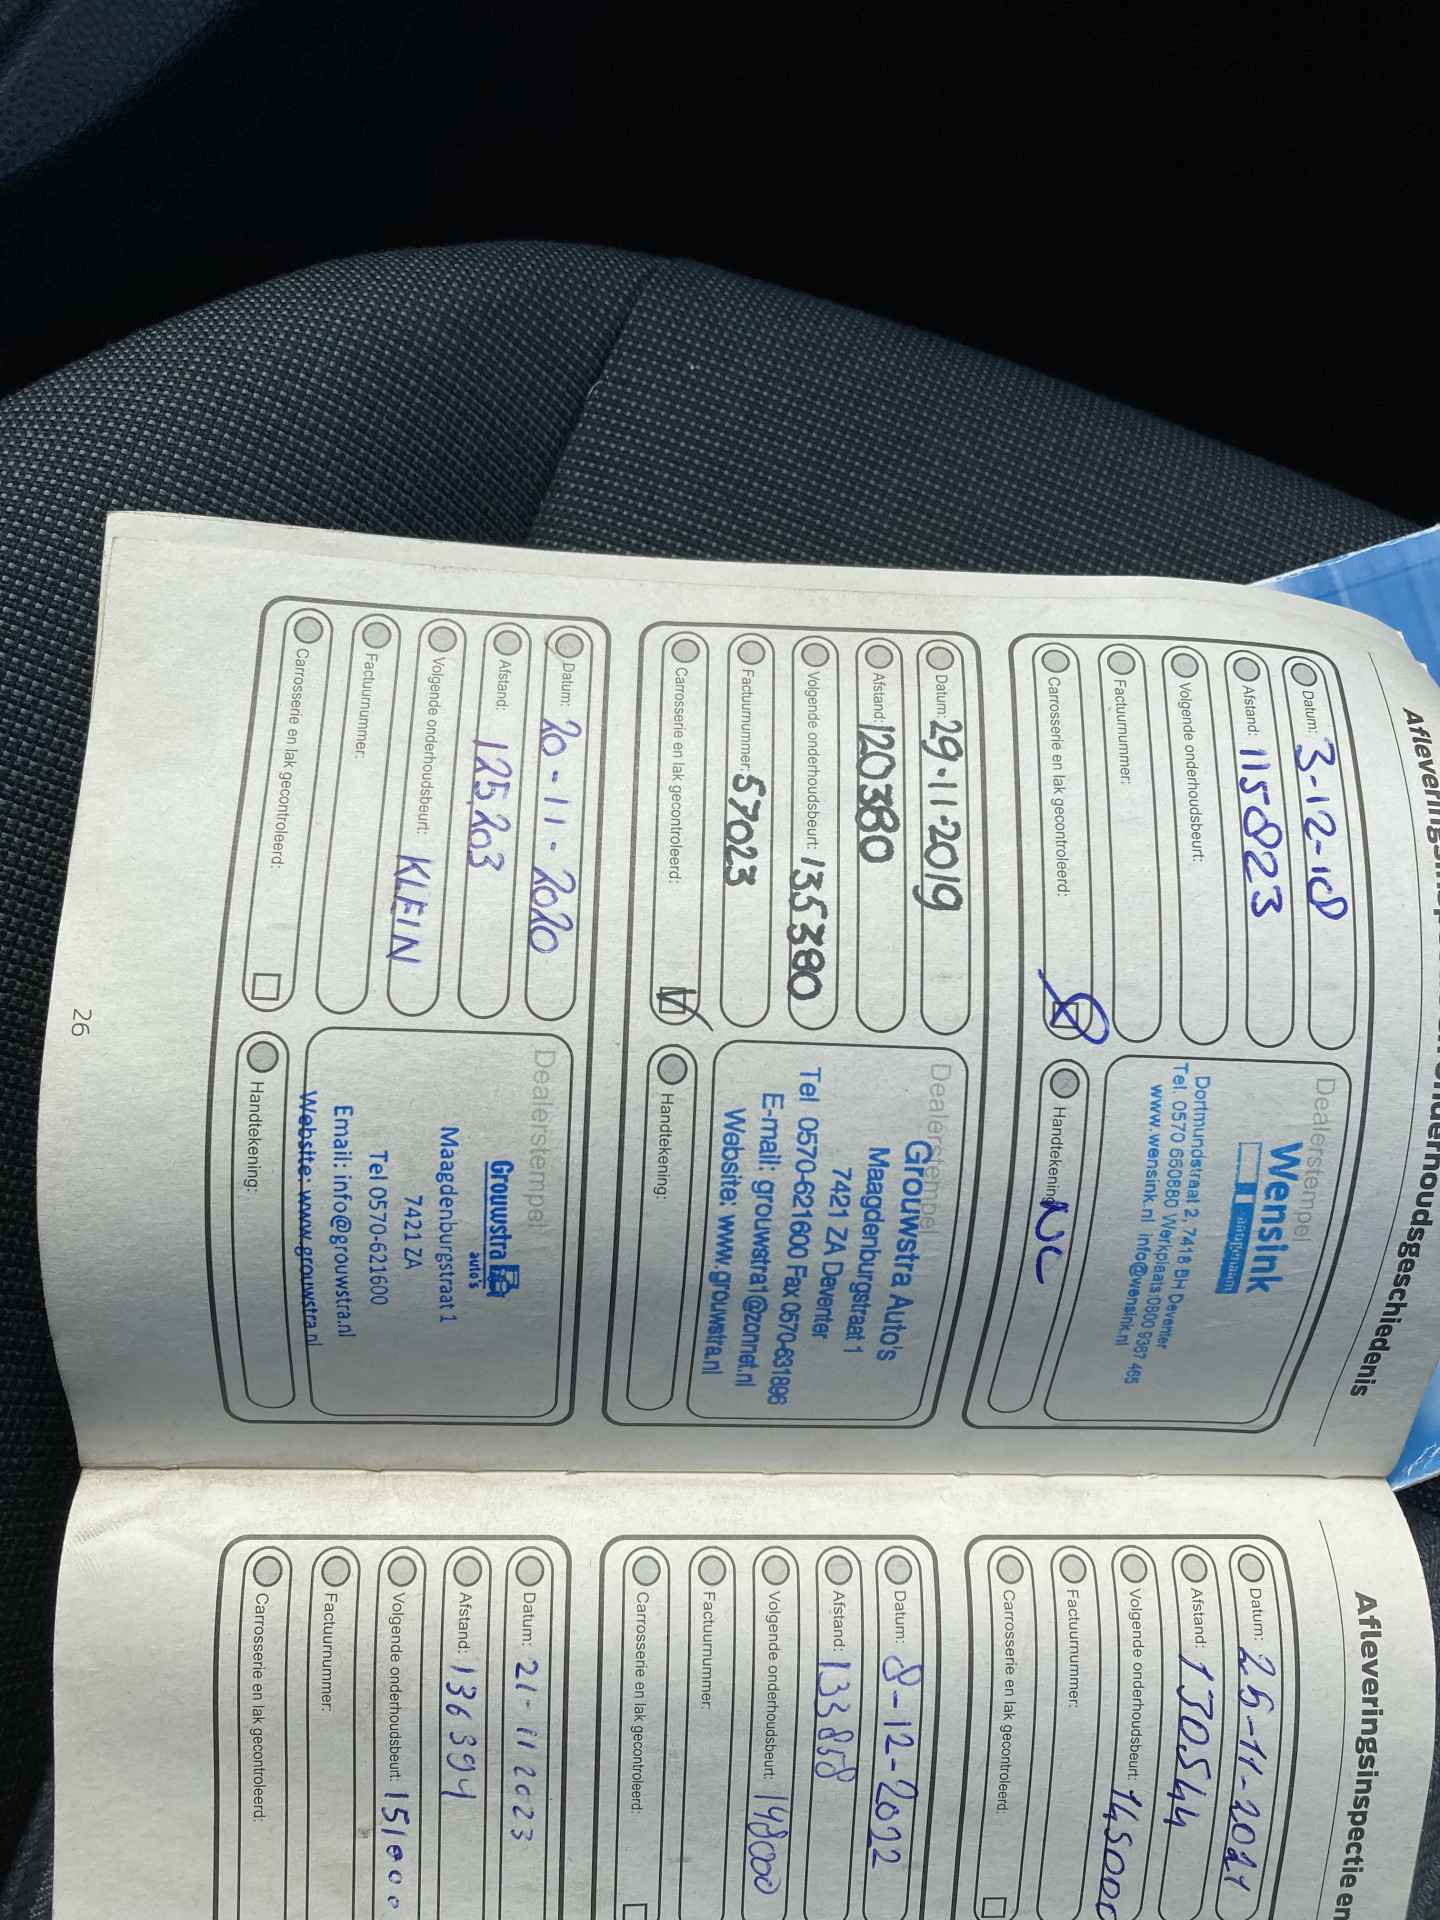 Afleveringsinspectie en onderhoudsgeschiedenis
Datum: 3-12-18
Afstand: 115823
Volgende onderhoudsbeurt:
Factuurnummer:
Carrosserie en lak gecontroleerd:
Dealerstempel
Wensink
Dortmundstraat 2, 7418 BH Deventer
Tel. 0570 660880 Werkplaats:0800 9367 465
www.wensink.nl info@wensink.nl
Handtekening
Datum: 29-11-2019
Afstand: 120380
Volgende onderhoudsbeurt: 135380
Factuurnummer: 57023
Carrosserie en lak gecontroleerd:
Dealerstempel
Grouwstra Auto's
Maagdenburgstraat 1
7421 ZA Deventer
Tel 0570-621600 Fax 0570-631896
E-mail: grouwstra1@zonnet.nl
Website: www.grouwstra.nl
Handtekening:
Datum: 20-11-2020
Afstand: 125.203
Volgende onderhoudsbeurt: KLEIN
Factuurnummer:
Carrosserie en lak gecontroleerd:
Dealerstempel
Grouwstra
auto's
Maagdenburgstraat 1
7421 ZA
Tel 0570-621600
Email: info@grouwstra.nl
Website: www.grouwstra.nl
Handtekening:
26
Afleveringsinspectie en
Datum: 25-11-2021
Afstand: 130544
Volgende onderhoudsbeurt: 145000
Factuurnummer:
Carrosserie en lak gecontroleerd:
Datum: 8-12-2022
Afstand: 133858
Volgende onderhoudsbeurt: 148000
Factuurnummer:
Carrosserie en lak gecontroleerd:
Datum: 21-11 2023
Afstand:
Volgende onderhoudsbeurt: 151000
Factuurnummer:
Carrosserie en lak gecontroleerd: